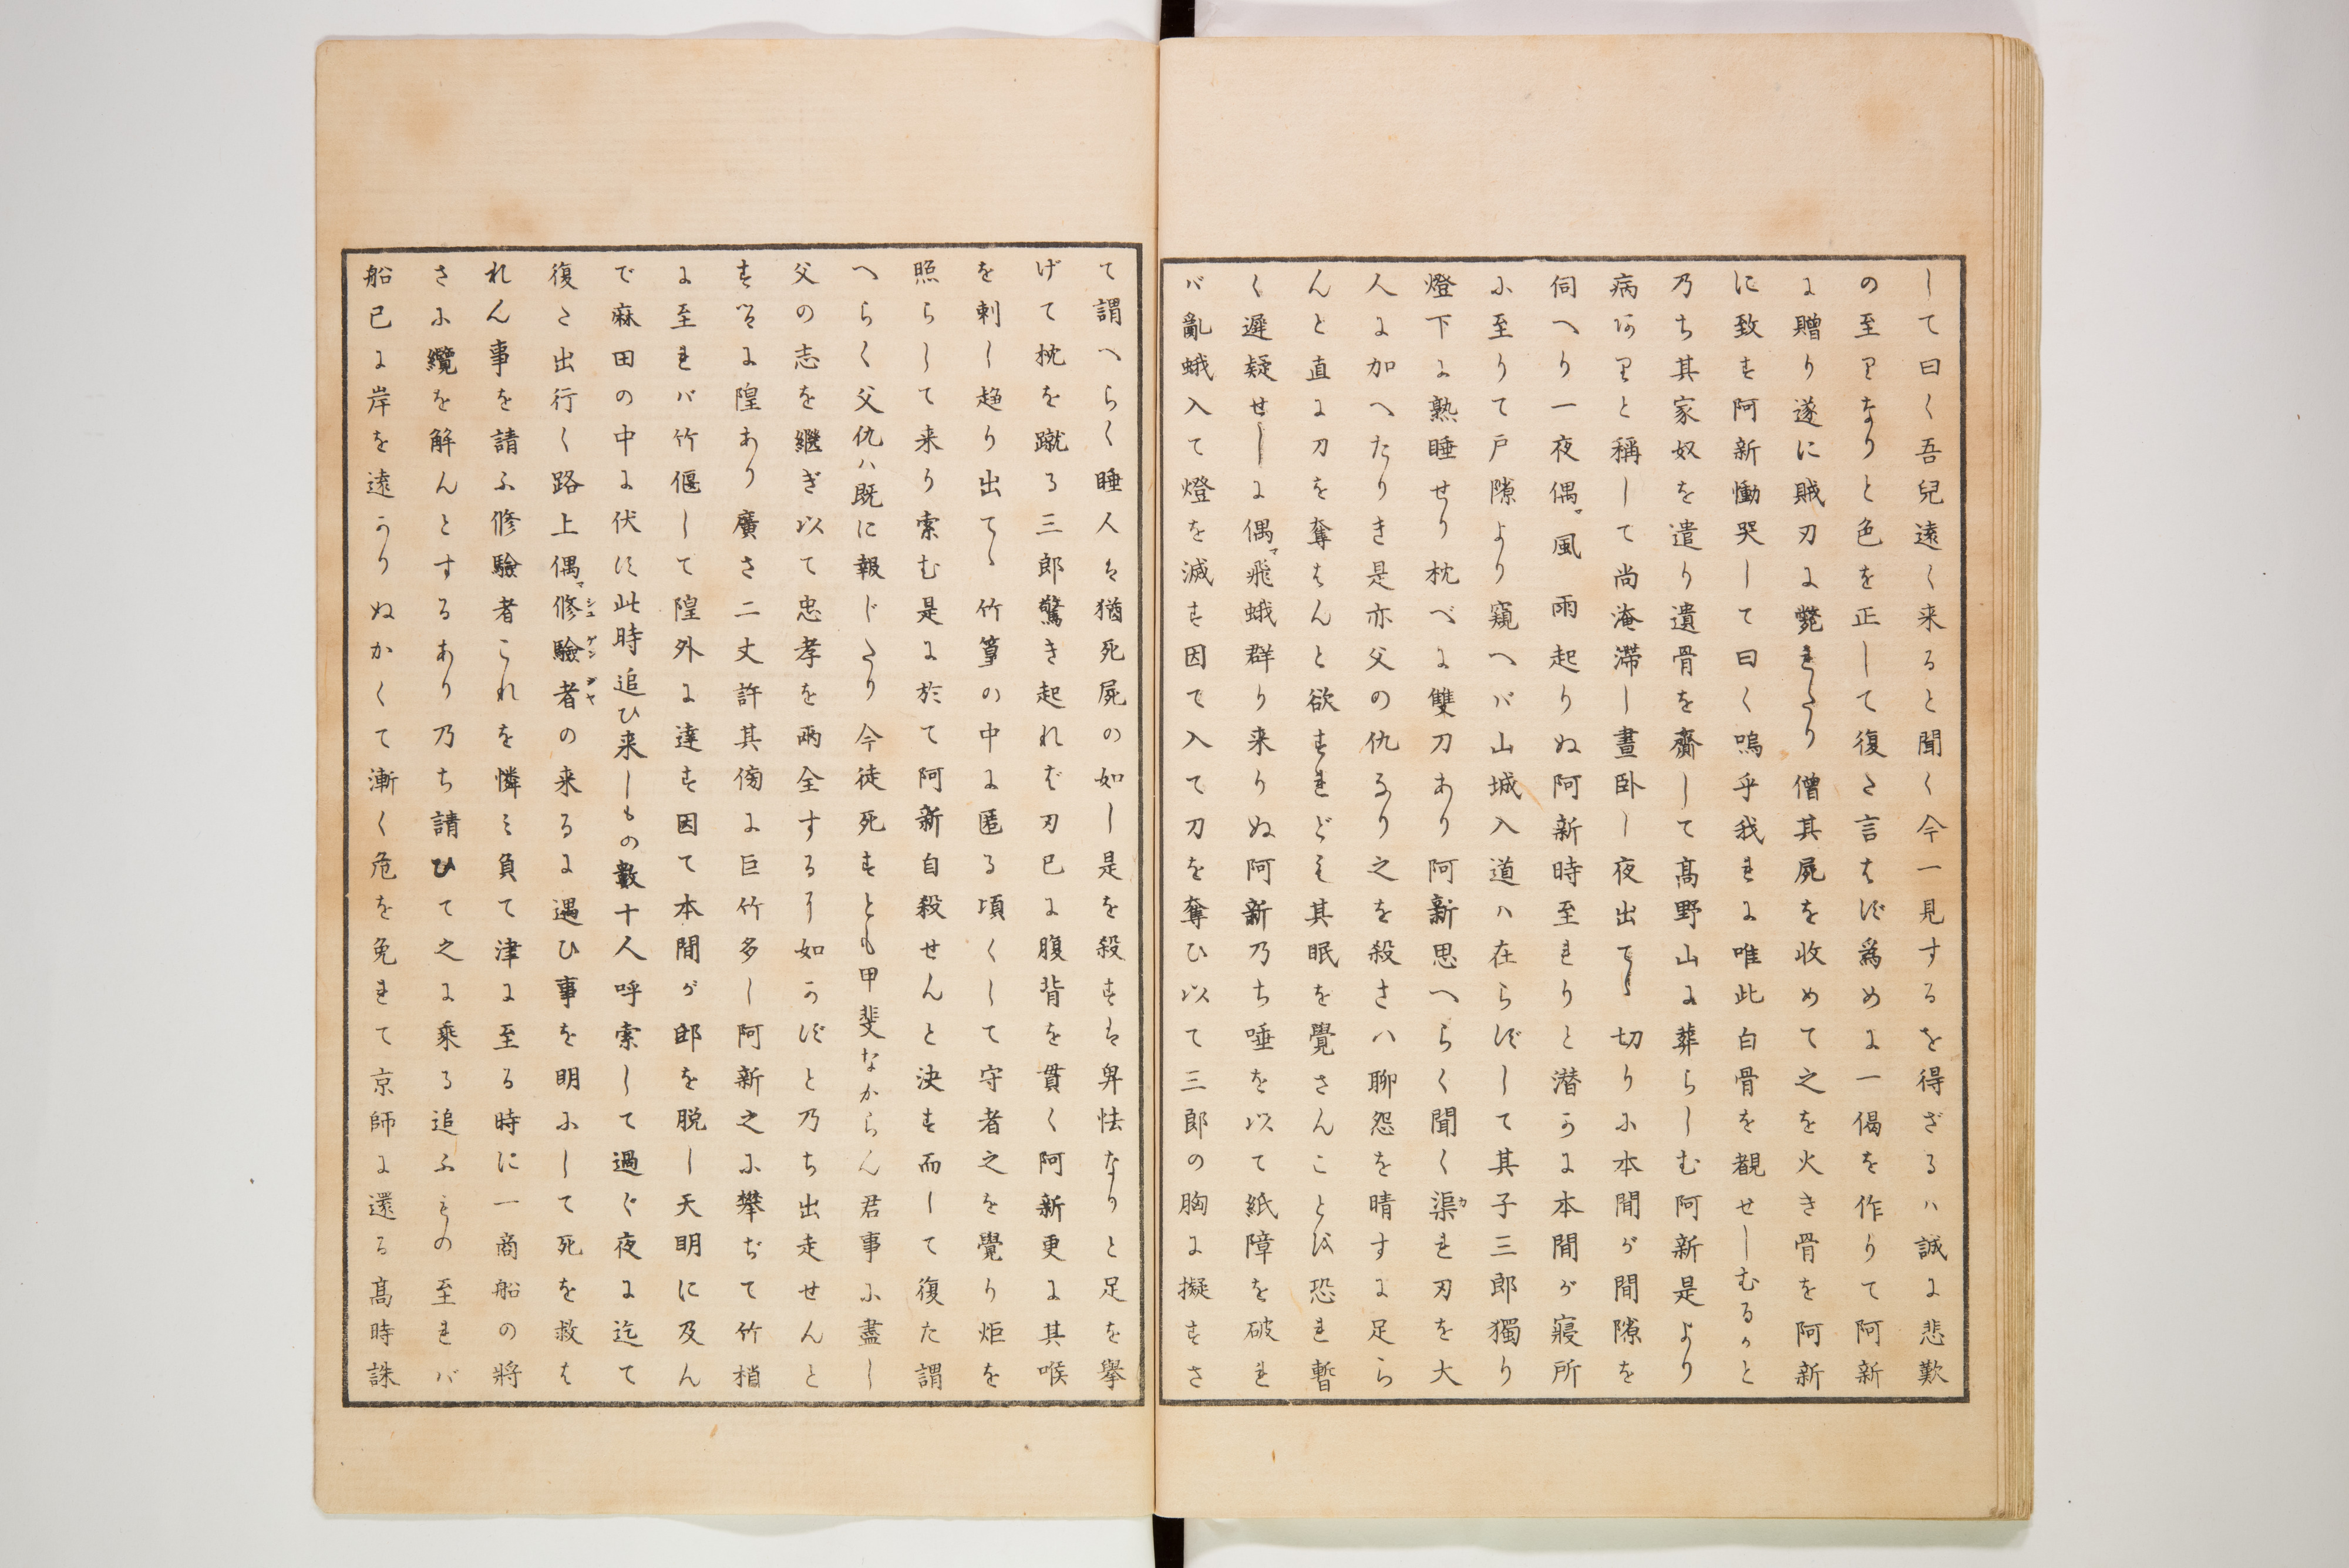 して曰く吾兒遠く来ると聞く今一見するを得ざるハ誠に悲歎
の至りなりと色を正して復た言はず爲めに一偈を作りて阿新
に贈り遂に賊刃に斃れたり僧其屍を收めて之を火き骨を阿新
に致す阿新慟哭して曰く嗚乎我れに唯此白骨を覩せしむるかと
乃ち其家奴を遣り遺骨を齎して髙野山に葬らしむ阿新是より
病ありと稱して尚淹滞し晝卧し夜出でゝ切りに本間が間隙を
伺へり一夜偶マ風雨起りぬ阿新時至れりと潜かに本間が寝所
に至りて戸隙より窺へバ山城入道ハ在らずして其子三郎獨り
燈下に熟睡せり枕べに雙刀あり阿新思へらく聞く渠カれ刃を大
人に加へたりき是亦父の仇なり之を殺さハ聊怨を晴すに足ら
んと直に刀を奪はんと欲すれども其眠を覺さんことを恐れ暫
く遲疑せしに偶マ飛蛾群り来りぬ阿新乃ち唾を以て紙障を破れ
バ亂蛾入て燈を滅す因で入て刀を奪ひ以て三郎の胸に擬すさ
て謂へらく睡人は猶死屍の如し是を殺すは卑怯なりと足を擧
げて枕を蹴る三郎驚き起れば刃已に腹背を貫く阿新更に其喉
を刺し趋り出でゝ竹篁の中に匿る頃くして守者之を覺り炬を
照らして来り索む是に於て阿新自殺せんと決す而して復た謂
へらく父仇ハ既に報じたり今徒死すとも甲斐なからん君事に盡し
父の志を継ぎ以て忠孝を兩全するに如かずと乃ち出走せんと
す然るに隍あり廣さ二丈許其傍に巨竹多し阿新之に攀ぢて竹梢
に至れバ竹偃して隍外に達す因て本間が邸を脱し天明に及ん
で麻田の中に伏す此時追ひ来しもの數十人呼索して過ぐ夜に迄て
復た出行く路上偶マ修驗者シュゲンジヤの来るに遇ひ事を明にして死を救は
れん事を請ふ修驗者これを憐ミ負て津に至る時に一商船の將
さに纜を解んとするあり乃ち請ひて之に乘る追ふものの至れバ
船已に岸を遠かりぬかくて漸く危を免れて京師に還る髙時誅